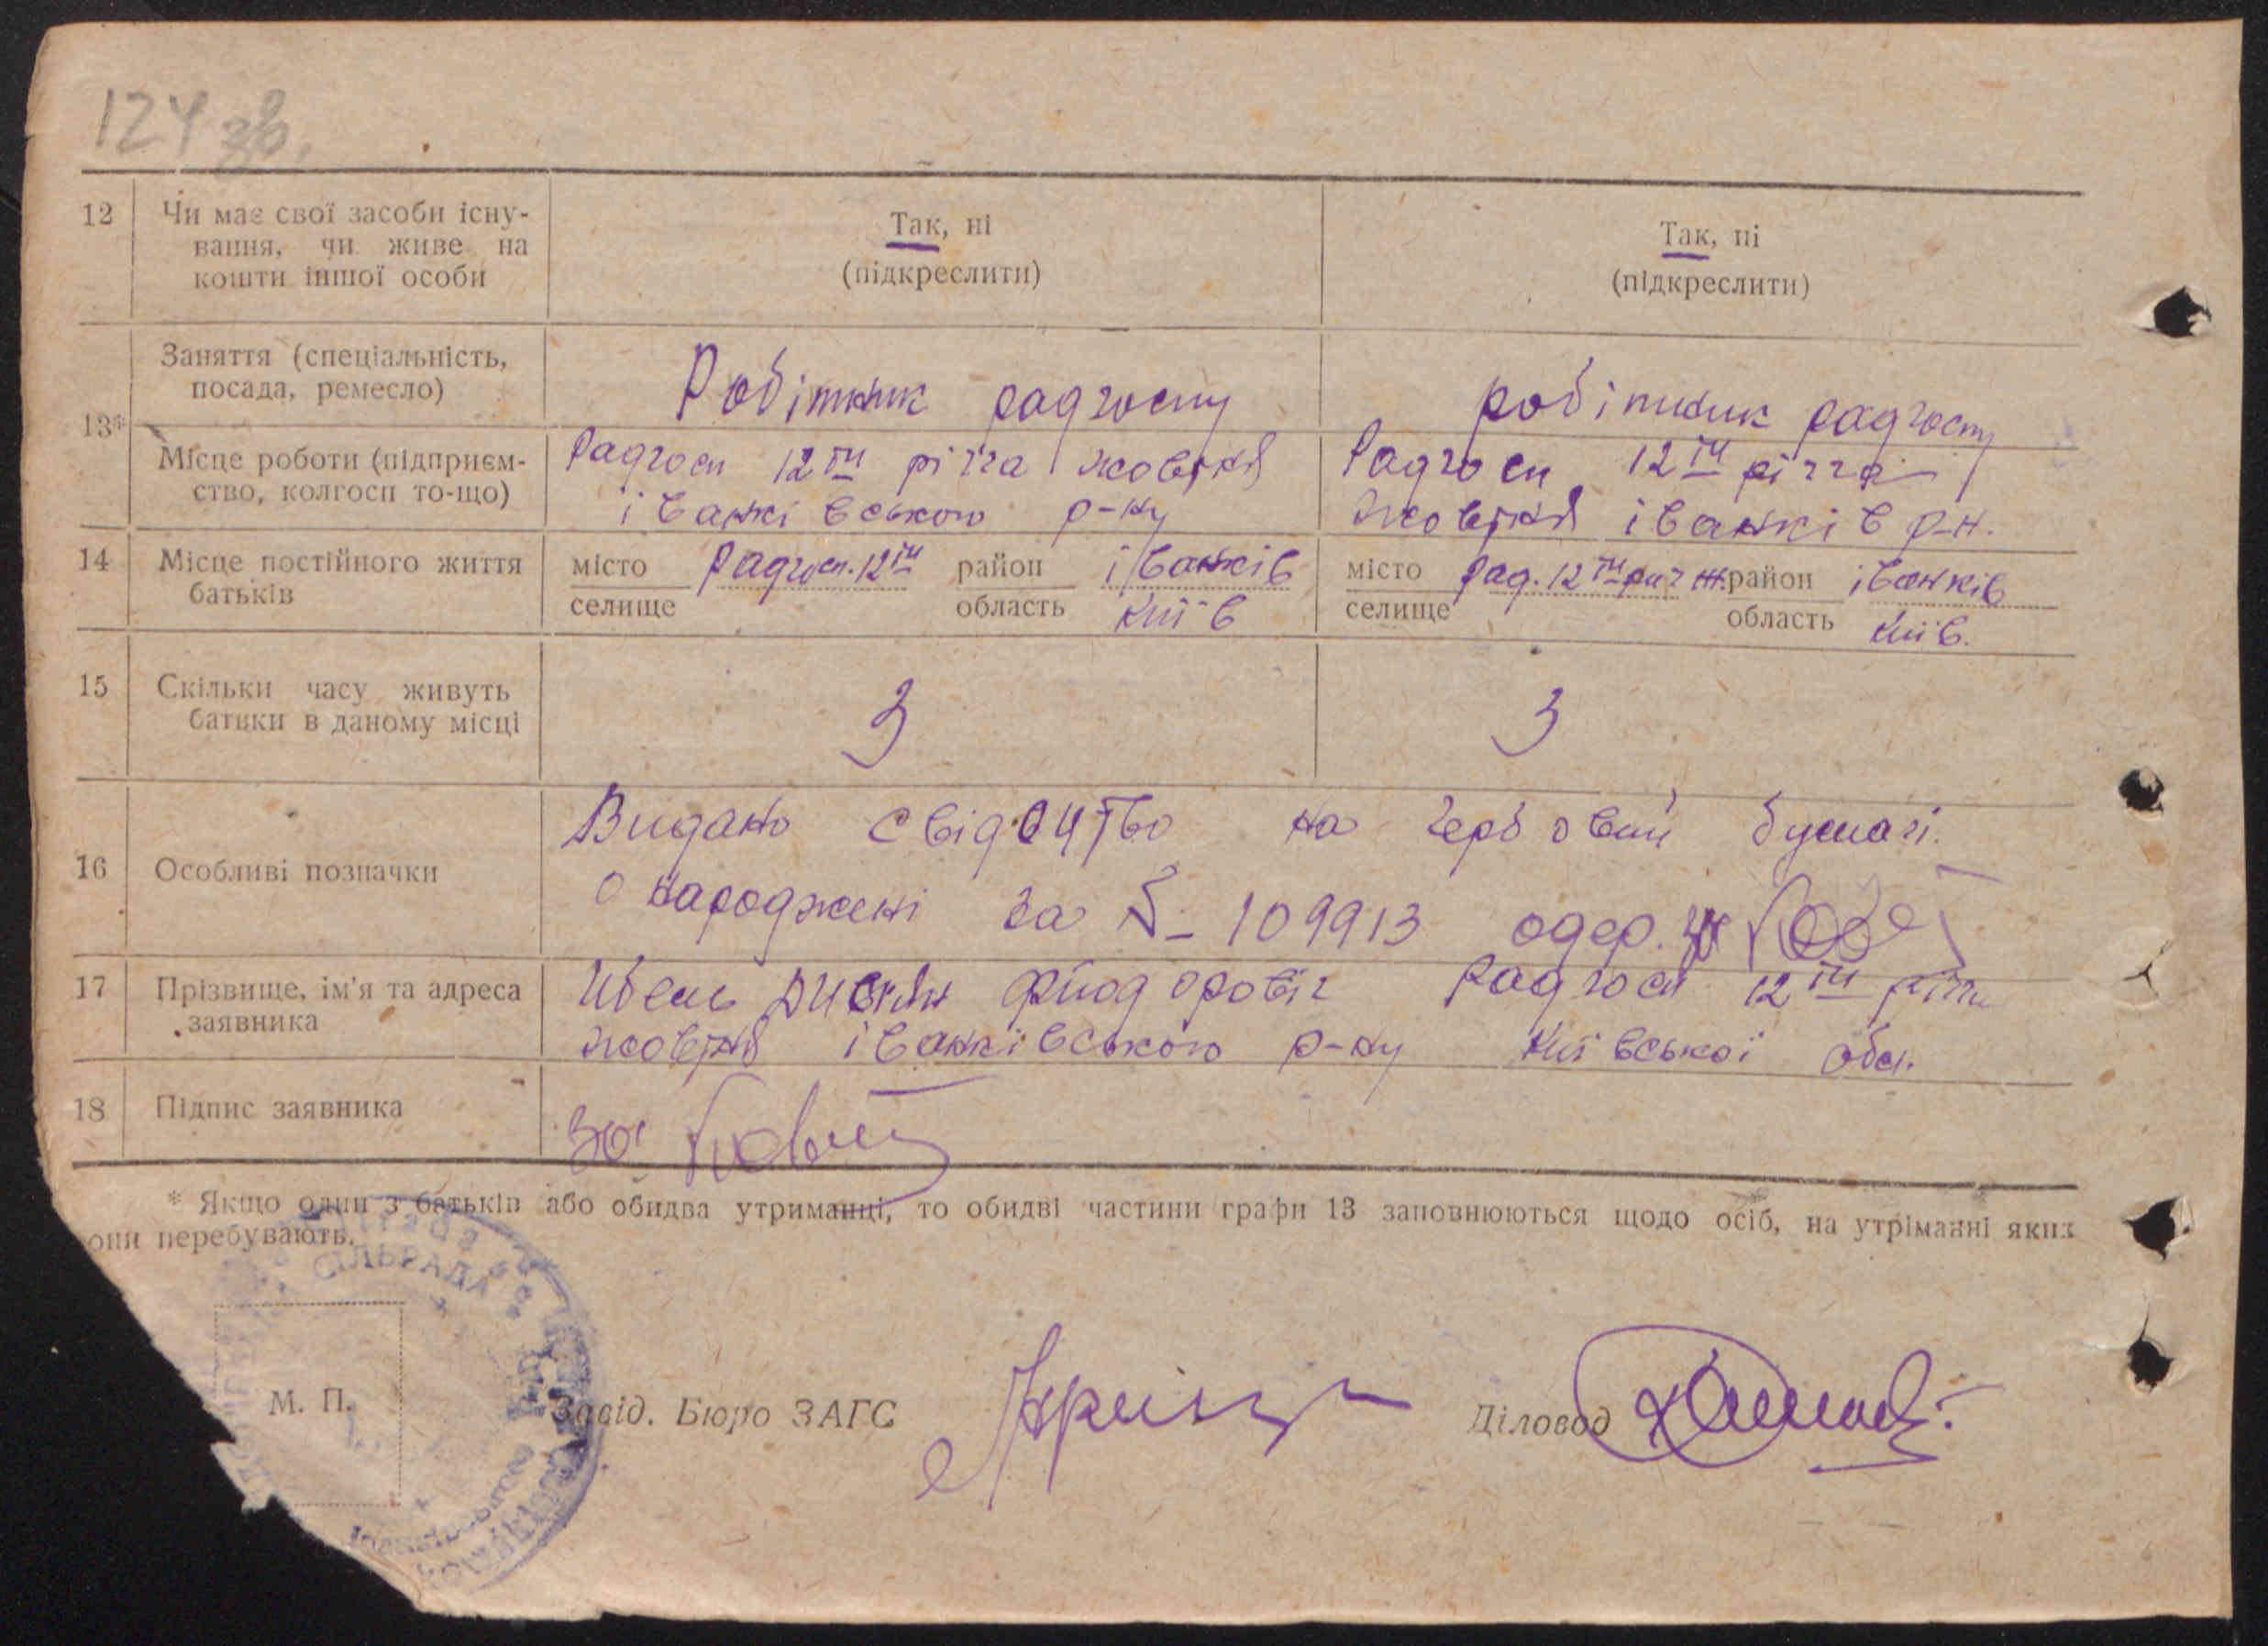 124 зв.
12 Чи має свої засоби існу-
вання, чи живе на
кошти іншої особи
Так, ні
(підкреслити)
Так, ні
(підкреслити)
13*
Заняття (спеціальність,
посада, ремесло)
Робітник радгоспу
робітник радгоспу
Місце роботи (підприєм-
ство, колгосп то-що)
Радгосп 12 ти річча жовтня
іванківського р-ну
Радгосп 12 ти річча
жовтня іванків р-н.
14 Місце постійного життя
батьків
місто Радгосп. 12 ти район іванків
селище область Київ
місто Рад. 12 ти річ ж. район іванків
селище область Київ.
15 Скільки часу живуть
батьки в даному місці
3
3
16 Особливі позначки
Видано свідоцтво на гербовий бумагі.
о народжені за № 109913 одер.
17 Прізвище, ім'я та адреса
заявника
фйодоровіч Радгосп 12 ти річча
жовтня іванківського р-ну Київської обл.
18 Підпис заявника
* Якщо один з батьків або обидва утриманці, то обидві частини графи 13 заповнюються щодо осіб, на утріманні яких
они перебувають.
СІЛЬРАДА
М. П.
Завід. Бюро ЗАГС
Діловод